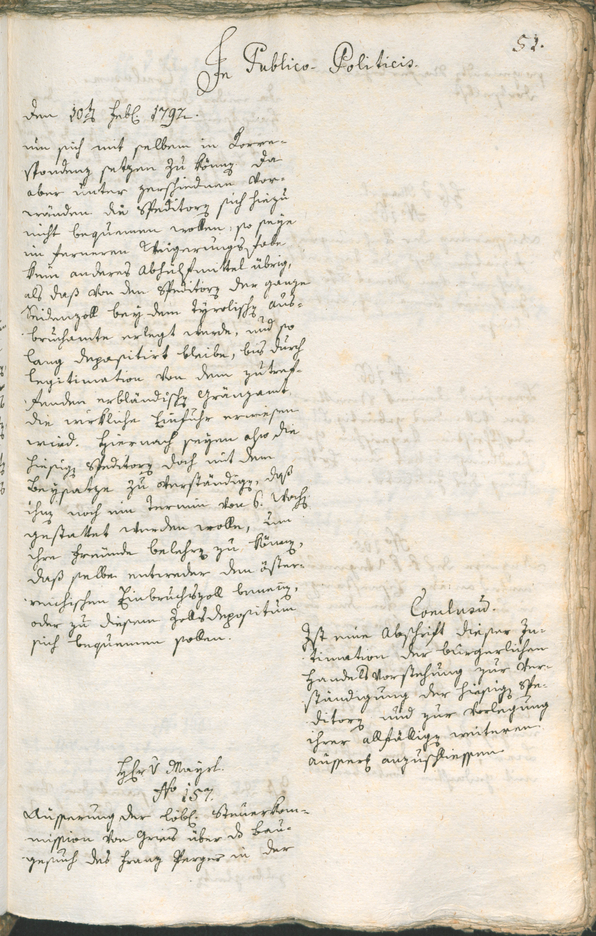 51.
In Publico-Politicis.
den 10ten Feb. 1792.
um sich mit selbem in Corre-
spondenz setzen zu könen. Da
aber unter verschiednen Vor-
wänden die Speditors sich hiezu
nicht bequemen wollen; so seye
im ferneren Weigerungs falle
kein anderes Abhilfsmittel übrig,
als daß von den Speditors der ganze
Seidenzoll bey dem Tyrolischen Aus-
bruchamte erlegt werde, und so
lang depositirt bleibe, bis durch
Legitimation von dem zutref-
fenden erbländischen Gränzamt
die wirkliche Einfuhr erwiesen
wird. Hiernach seyen also die
hiesigen Speditors doch mit dem
Beysatze zu verständigen, daß
ihnen noch ein Termin von 6. Wochen
gestattet werden wolle, um
ihre Freunde belehren zu könen,
daß selbe entweder den öster-
reichischen Einbruchszoll benenen,
oder zu diesem Zollsdepositum
sich bequemen sollen.
Conclusum.
Ist eine Abschrift dieser In-
timation der bürgerlichen
Handelsvorstehung zur Ver-
ständigung der hiesigen Spe-
ditors und zur Vorlegung
ihrer allfälligen weiteren
Ausserung anzuschliessen.
Hr v Mayrl.
No 157.
Äusserung der löbl. Steuerkom-
mission von Gries über das Bau-
gesuch des Franz Perger in der